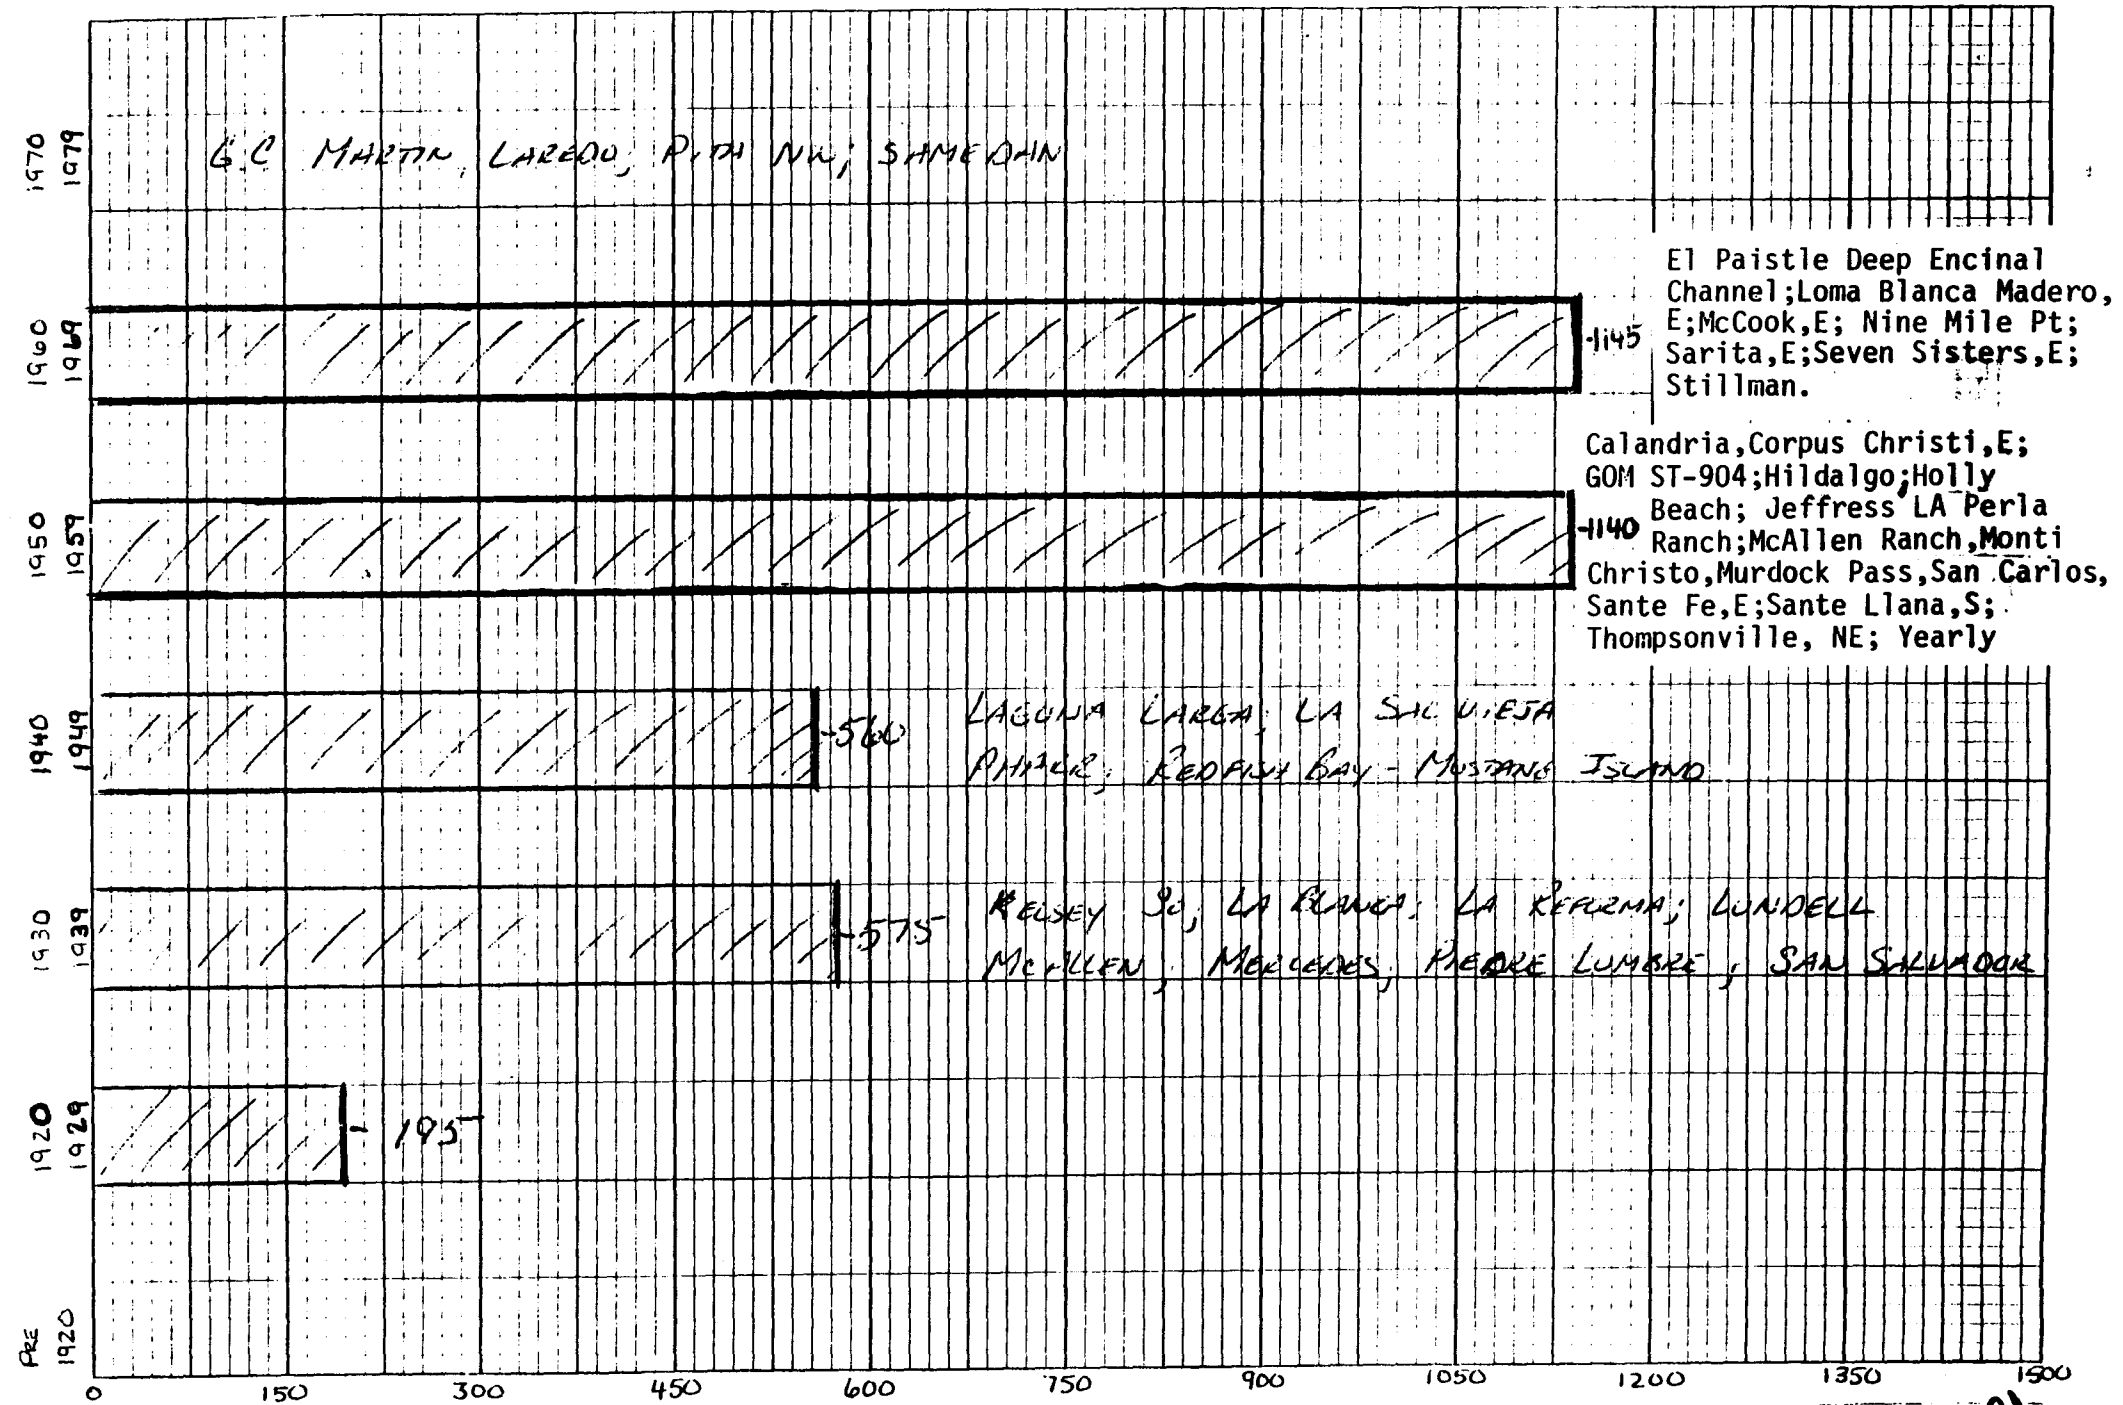 1970
1979
G.C MARTIN, LAREDO, PITA NW; SAMEDAN
1960
1969
-1145
El Paistle Deep Encinal
Channel;Loma Blanca Madero,
E;McCook,E; Nine Mile Pt;
Sarita,E;Seven Sisters,E;
Stillman.
1950
1959
-1140
Calandria,Corpus Christi,E;
GOM ST-904;Hildalgo;Holly
Beach; Jeffress LA Perla
Ranch;McAllen Ranch,Monti
Christo,Murdock Pass,San Carlos,
Sante Fe,E;Sante Llana,S;
Thompsonville, NE; Yearly
1940
1949
-560
LAGUNA LARGA; LA SAL VIEJA
REDFISH BAY - MUSTANG ISLAND
1930
1939
-575
KELSEY SO; LA BLANCA; LA REFORMA; LUNDELL
MCALLEN; MERCEDES; PIEDRE LUMBRE; SAN SALVADOR
1920
1929
- 195
PRE
1920
0 150 300 450 600 750 900 1050 1200 1350 1500